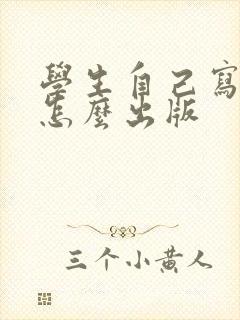 學生自己寫
怎麼出版
三个小黄人